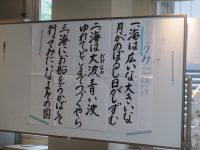 うみ
一、海は広いな大きいな
月がのぼるし日がしずむ
二、海は大波青い波
ゆれてどこまでつづくやら
三、海にお船をうかばして
行ってみたいなよその国